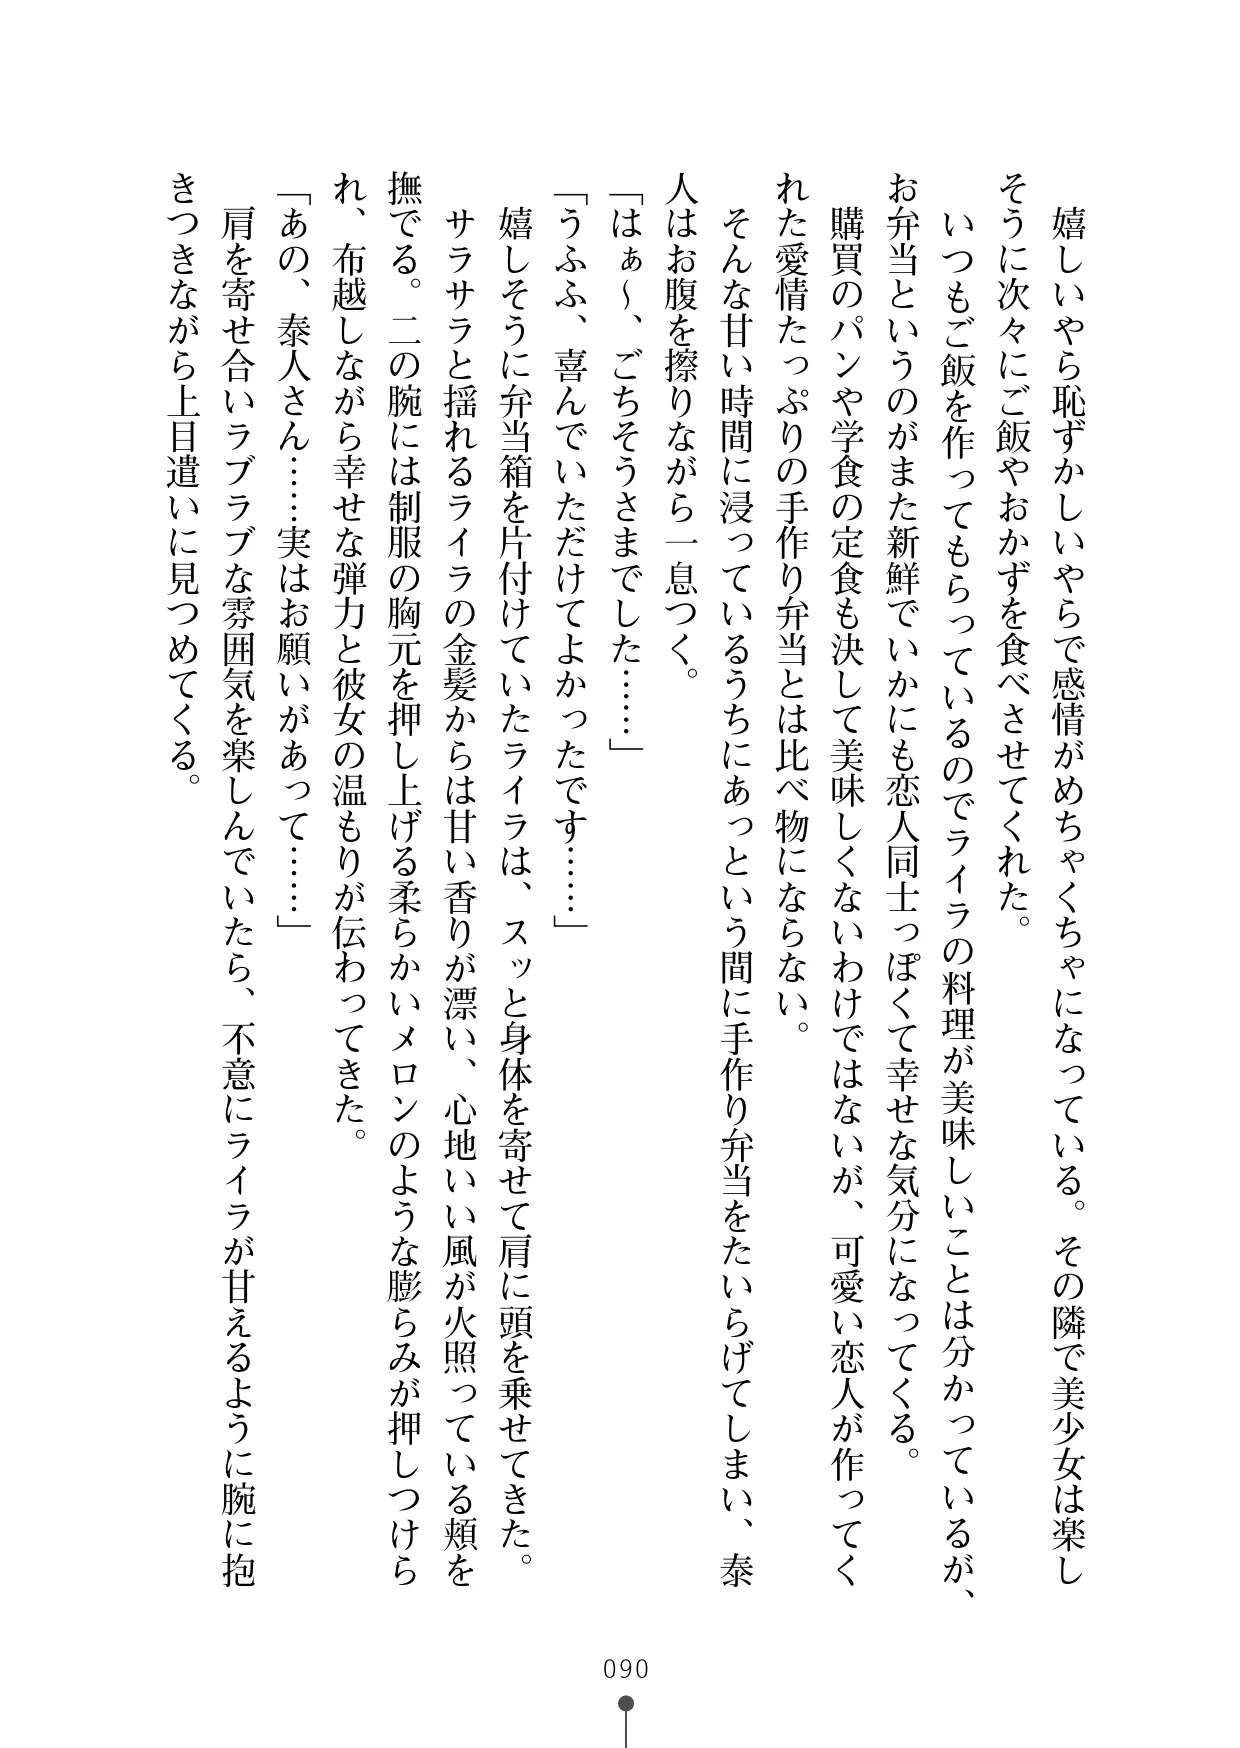 嬉しいやら恥ずかしいやらで感情がめちゃくちゃになっている。その隣で美少女は楽し
そうに次々にご飯やおかずを食べさせてくれた。
いつもご飯を作ってもらっているのでライラの料理が美味しいことは分かっているが、
お弁当というのがまた新鮮でいかにも恋人同士っぽくて幸せな気分になってくる。
購買のパンや学食の定食も決して美味しくないわけではないが、可愛い恋人が作ってく
れた愛情たっぷりの手作り弁当とは比べ物にならない。
そんな甘い時間に浸っているうちにあっという間に手作り弁当をたいらげてしまい、泰
人はお腹を擦りながら一息つく。
「はぁ～、ごちそうさまでした……」
「うふふ、喜んでいただけてよかったです……」
嬉しそうに弁当箱を片付けていたライラは、スッと身体を寄せて肩に頭を乗せてきた。
サラサラと揺れるライラの金髪からは甘い香りが漂い、心地いい風が火照っている頬を
撫でる。二の腕には制服の胸元を押し上げる柔らかいメロンのような膨らみが押しつけら
れ、布越しながら幸せな弾力と彼女の温もりが伝わってきた。
「あの、泰人さん……実はお願いがあって……」
肩を寄せ合いラブラブな雰囲気を楽しんでいたら、不意にライラが甘えるように腕に抱
きつきながら上目遣いに見つめてくる。
090